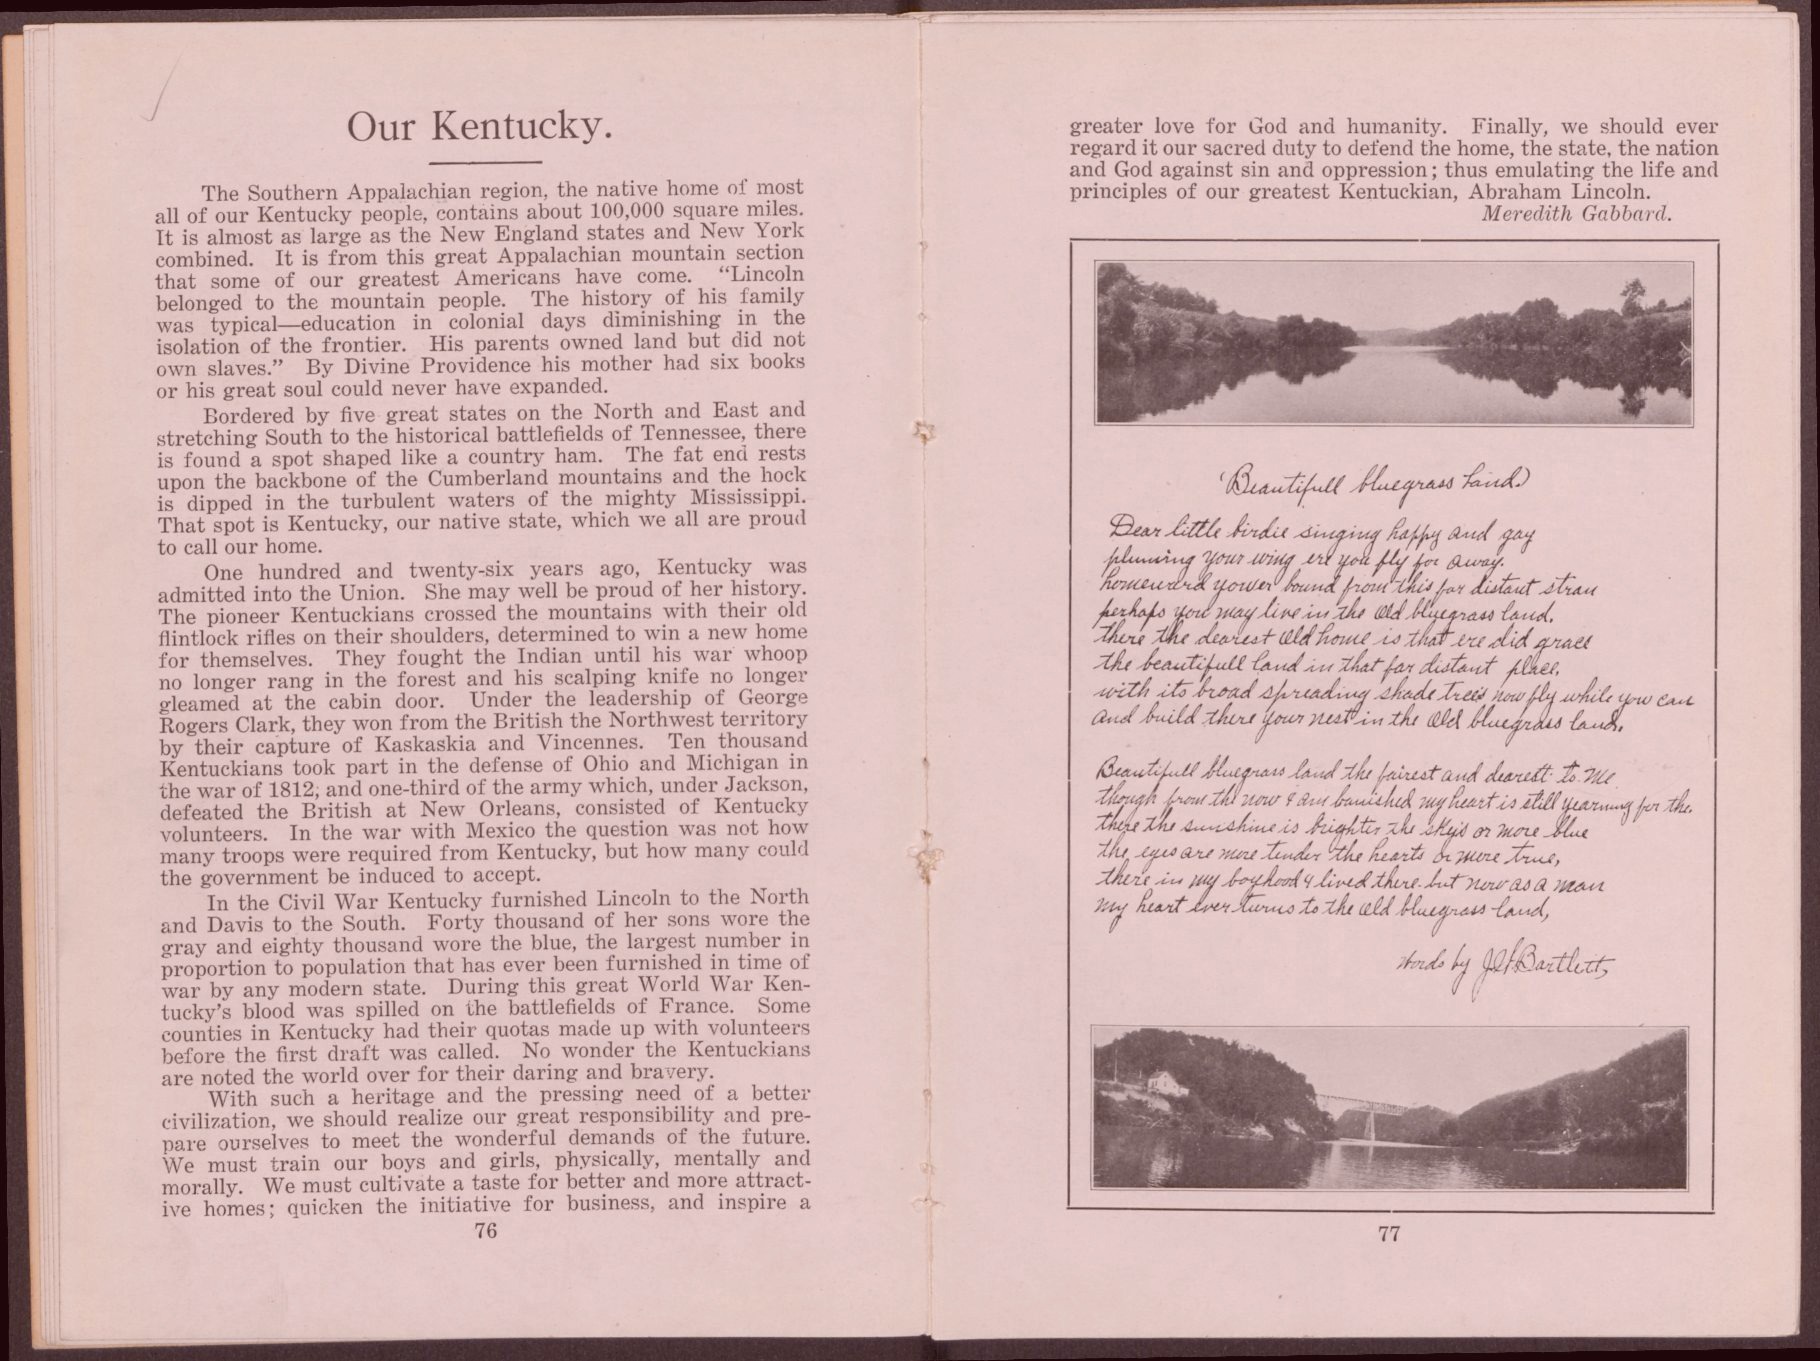 Our Kentucky.
The Southern Appalachian region, the native home of most
all of our Kentucky people, contains about 100,000 square miles.
It is almost as large as the New England states and New York
combined. It is from this great Appalachian mountain section
that some of our greatest Americans have come. "Lincoln
belonged to the mountain people. The history of his family
was typical—education in colonial days diminishing in the
isolation of the frontier. His parents owned land but did not
own slaves." By Divine Providence his mother had six books
or his great soul could never have expanded.
Bordered by five great states on the North and East and
stretching South to the historical battlefields of Tennessee, there
is found a spot shaped like a country ham. The fat end rests
upon the backbone of the Cumberland mountains and the hock
is dipped in the turbulent waters of the mighty Mississippi.
That spot is Kentucky, our native state, which we all are proud
to call our home.
One hundred and twenty-six years ago, Kentucky was
admitted into the Union. She may well be proud of her history.
The pioneer Kentuckians crossed the mountains with their old
flintlock rifles on their shoulders, determined to win a new home
for themselves. They fought the Indian until his war whoop
no longer rang in the forest and his scalping knife no longer
gleamed at the cabin door. Under the leadership of George
Rogers Clark, they won from the British the Northwest territory
by their capture of Kaskaskia and Vincennes. Ten thousand
Kentuckians took part in the defense of Ohio and Michigan in
the war of 1812, and one-third of the army which, under Jackson,
defeated the British at New Orleans, consisted of Kentucky
volunteers. In the war with Mexico the question was not how
many troops were required from Kentucky, but how many could
the government be induced to accept.
In the Civil War Kentucky furnished Lincoln to the North
and Davis to the South. Forty thousand of her sons wore the
gray and eighty thousand wore the blue, the largest number in
proportion to population that has ever been furnished in time of
war by any modern state. During this great World War Ken-
tucky's blood was spilled on the battlefields of France. Some
counties in Kentucky had their quotas made up with volunteers
before the first draft was called. No wonder the Kentuckians
are noted the world over for their daring and bravery.
With such a heritage and the pressing need of a better
civilization, we should realize our great responsibility and pre-
pare ourselves to meet the wonderful demands of the future.
We must train our boys and girls, physically, mentally and
morally. We must cultivate a taste for better and more attract-
ive homes; quicken the initiative for business, and inspire a
76
greater love for God and humanity. Finally, we should ever
regard it our sacred duty to defend the home, the state, the nation
and God against sin and oppression; thus emulating the life and
principles of our greatest Kentuckian, Abraham Lincoln.
Meredith Gabbard.
(Beautifull bluegrass Land.)
Dear little birdie singing happy and gay
pluming your wing ere you fly for away.
homeward yower bound from this far distant stran
perhaps you may live in the old bluegrass land.
there the dearest old home is that ere did grace
the beautifull land in that far distant place,
with its broad spreading shade trees now fly while you can
and build there your nest in the old bluegrass land.
Beautifull bluegrass land the fairest and dearest to me
though from the now I am banished my heart is still yearning for the.
there the sunshine is brighter the skys or more blue
the eyes are more tender the hearts or more true,
there in my boyhood I lived there but now as a man
my heart ever turns to the old bluegrass land,
Words by Bartlett,
77